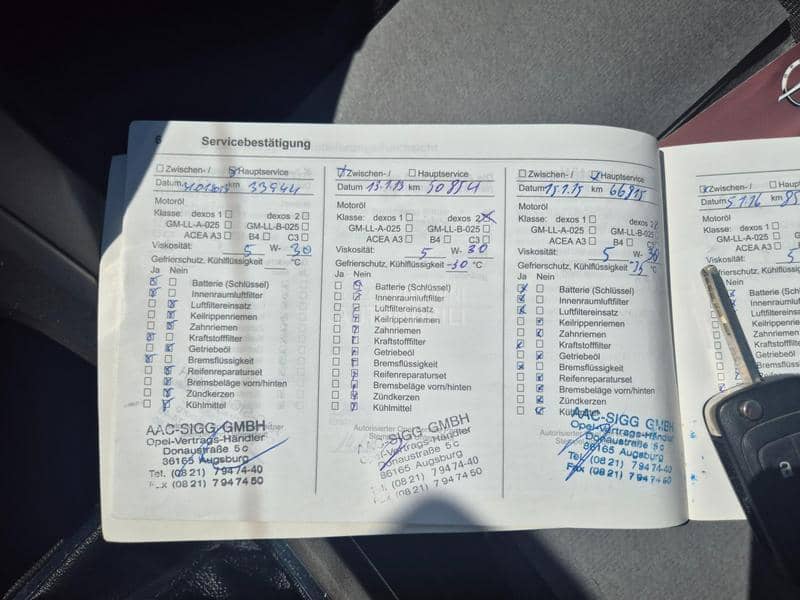 6 Servicebestätigung
Zwischen-/ Hauptservice
Datum km 33944
Motoröl
Klasse: dexos 1 dexos 2
GM-LL-A-025 GM-LL-B-025
ACEA A3 B4 C3
Viskosität: 5 W- 30
Gefrierschutz, Kühlflüssigkeit °C
Ja Nein
Batterie (Schlüssel)
Innenraumluftfilter
Luftfiltereinsatz
Keilrippenriemen
Zahnriemen
Kraftstofffilter
Getriebeöl
Bremsflüssigkeit
Reifenreparaturset
Bremsbeläge vorn/hinten
Zündkerzen
Kühlmittel
AAC-SIGG GMBH
Opel-Vertrags-Händler
Donaustraße 5 c
86165 Augsburg
Tel. (08 21) 7 94 74-40
Fax (08 21) 7 94 74 50
Zwischen-/ Hauptservice
Datum km 50854
Motoröl
Klasse: dexos 1 dexos 2
GM-LL-A-025 GM-LL-B-025
ACEA A3 B4 C3
Viskosität: 5 W- 30
Gefrierschutz, Kühlflüssigkeit -30 °C
Ja Nein
Batterie (Schlüssel)
Innenraumluftfilter
Luftfiltereinsatz
Keilrippenriemen
Zahnriemen
Kraftstofffilter
Getriebeöl
Bremsflüssigkeit
Reifenreparaturset
Bremsbeläge vorn/hinten
Zündkerzen
Kühlmittel
Autorisierter
SIGG GMBH
-Vertrags-Händler
Donaustraße 5 c
86165 Augsburg
(08 21) 7 94 74-40
(08 21) 7 94 74 50
Zwischen-/ Hauptservice
Datum 15.1.15 km 66815
Motoröl
Klasse: dexos 1 dexos 2
GM-LL-A-025 GM-LL-B-025
ACEA A3 B4 C3
Viskosität: 5 W- 30
Gefrierschutz, Kühlflüssigkeit °C
Ja Nein
Batterie (Schlüssel)
Innenraumluftfilter
Luftfiltereinsatz
Keilrippenriemen
Zahnriemen
Kraftstofffilter
Getriebeöl
Bremsflüssigkeit
Reifenreparaturset
Bremsbeläge vorn/hinten
Zündkerzen
Autorisierter
AAC-SIGG GMBH
Opel-Vertrags-Händler
Donaustraße 5 c
86165 Augsburg
Tel. (08 21) 7 94 74-40
Fax (08 21) 7 94 74 50
Zwischen-/ Hauptservice
Datum 5.1.16 km
Motoröl
Klasse: dexos 1
GM-LL-A-025
ACEA A3
Viskosität: 5
Gefrierschutz, Kühlflüssigkeit
Ja Nein
Batterie
Innenraumluftfilter